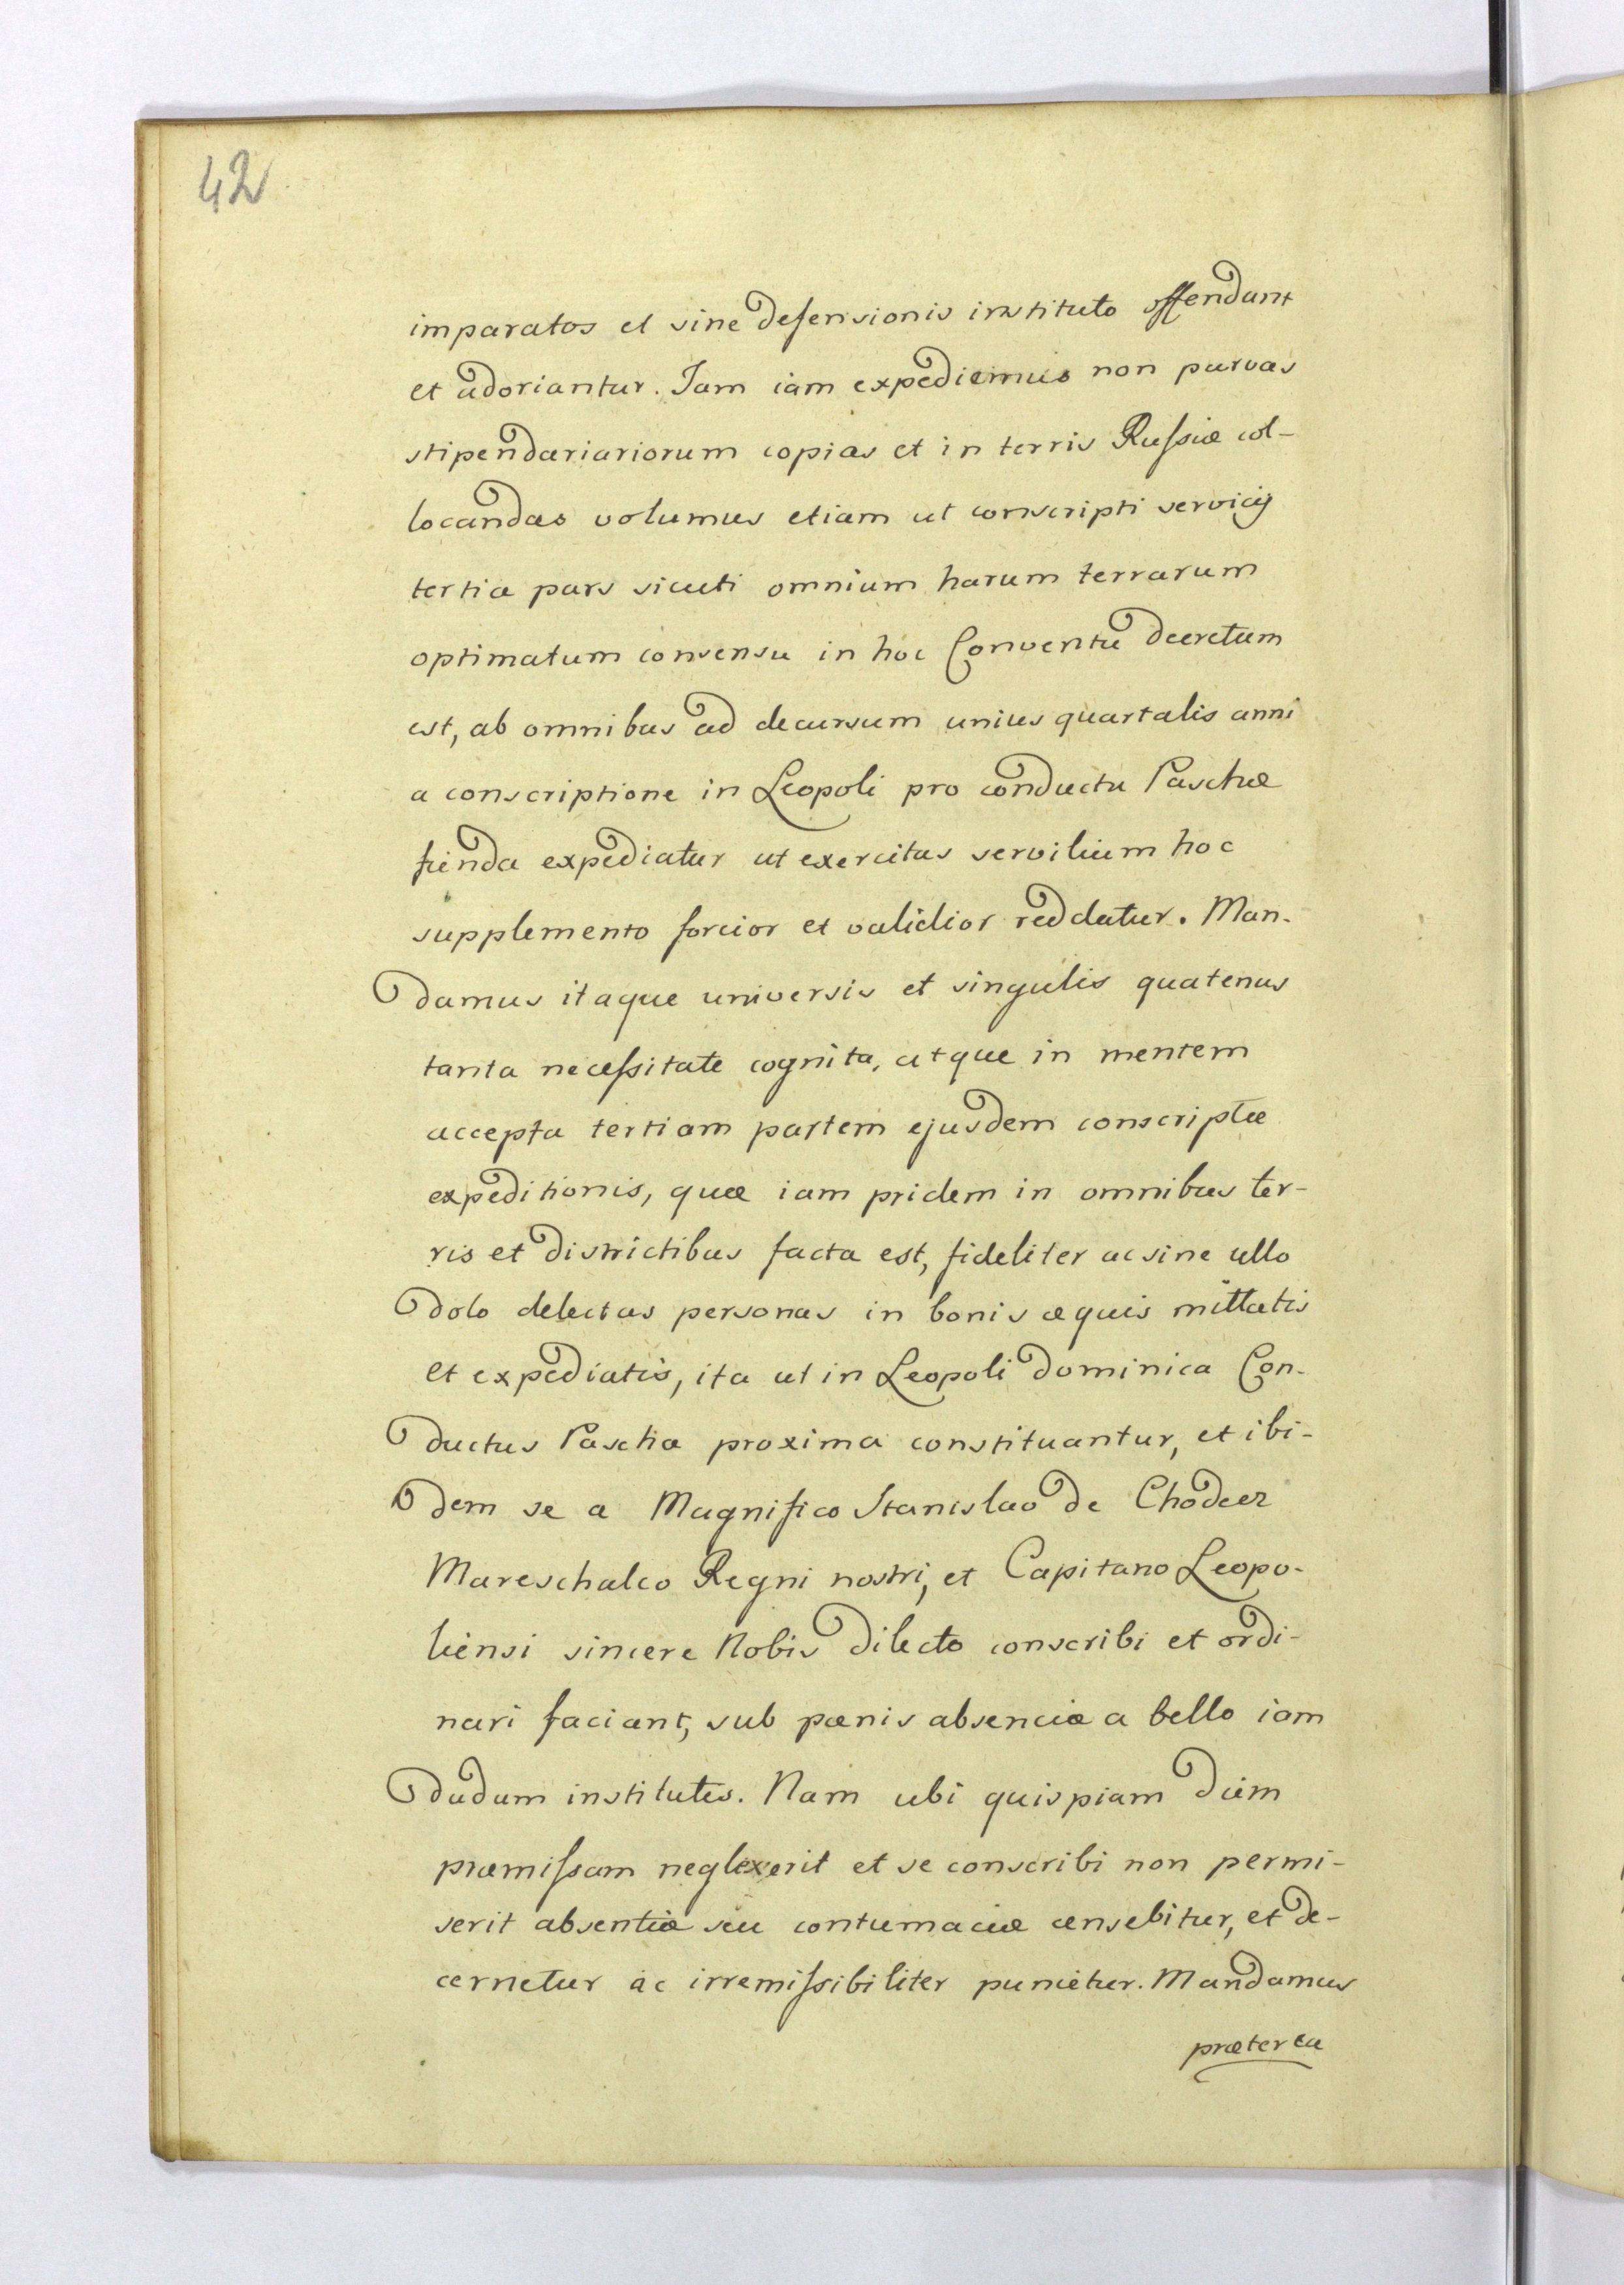 42
imparatos et sine defensionis instituto offendant
et adoriantur. Iam iam expediemus non parvas
stipendariariorum copias et in terris Russiæ col-
locandas volumus etiam ut conscripti servicij
tertia pars sicuti omnium harum terrarum
optimatum consensu in hoc Conventu decretum
est, ab omnibus ad decursum unius quartalis anni
a conscriptione in Leopoli pro conductu Paschæ
fienda expediatur ut exercitus servilium hoc
supplemento forcior et validior reddatur. Man-
damus itaque universis et singulis quatenus
tanta necessitate cognita, atque in mentem
accepta tertiam partem ejusdem conscriptæ
expeditionis, quæ iam pridem in omnibus ter-
ris et districtibus facta est, fideliter ac sine ullo
dolo delectas personas in bonis æquis mittatis
et expediatis, ita ut in Leopoli dominica Con-
ductus Pascha proxima constituantur, et ibi-
dem se a Magnifico Stanislao de Chodecz
Mareschalco Regni nostri, et Capitano Leopo-
liensi sincere Nobis dilecto conscribi et ordi-
nari faciant, sub pænis absenciæ a bello iam
dudum institutis. Nam ubi quispiam diem
præmissam neglexerit et se conscribi non permi-
serit absentiæ seu contumaciæ censebitur, et de-
cernetur ac irremissibiliter punietur. Mandamus
præterea